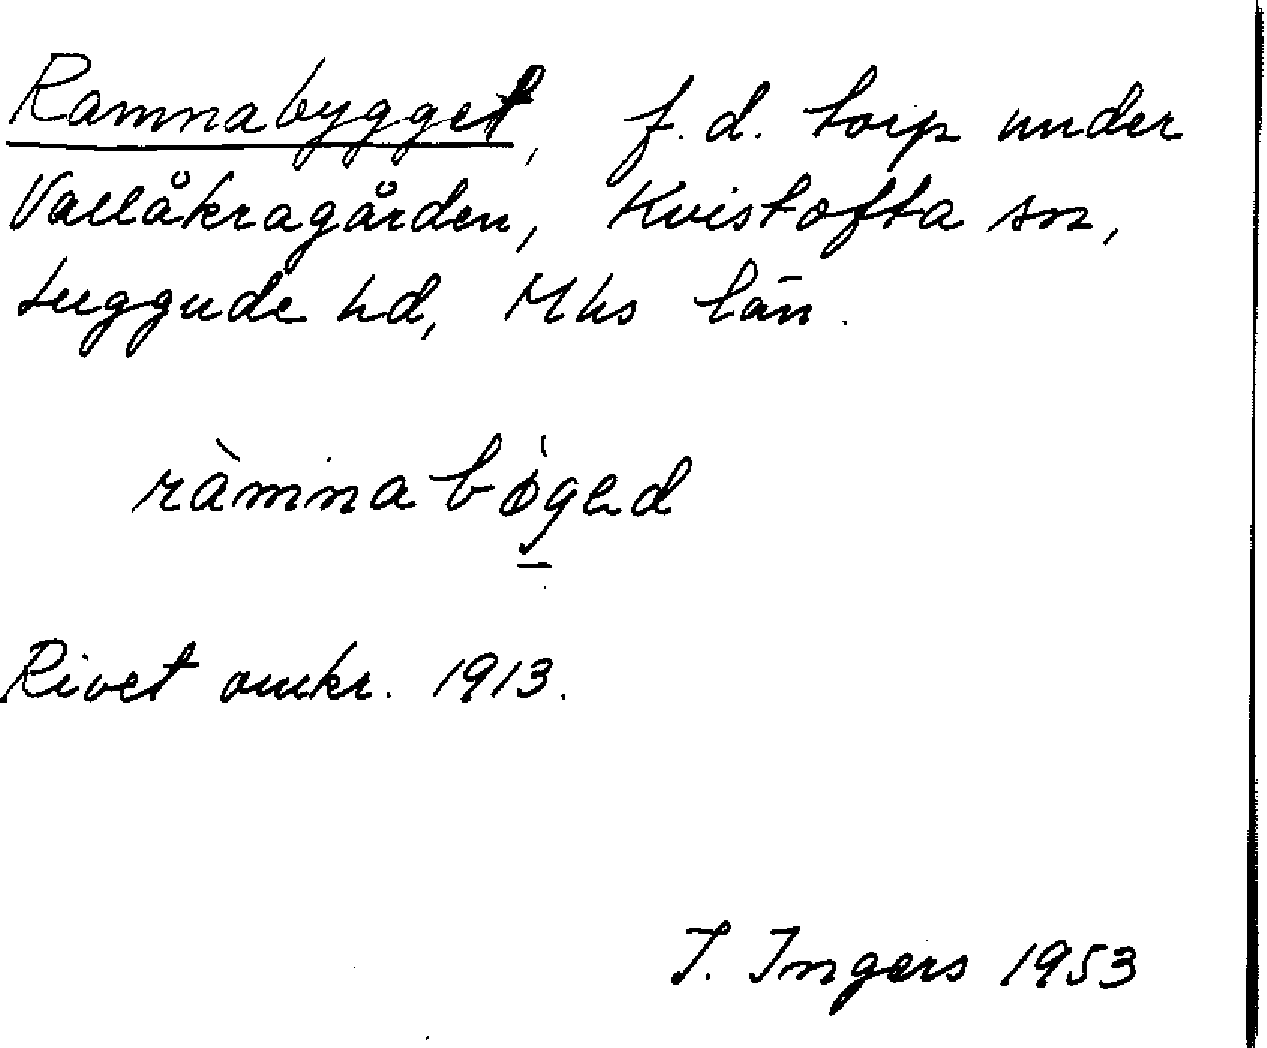 Ramnabygget, f.d. torp under
Vallåkragården, Kvistofta sn,
Luggude hd, Mhs län.
ràmnabø̀ged
Rivet omkr. 1913.
I. Ingers 1953